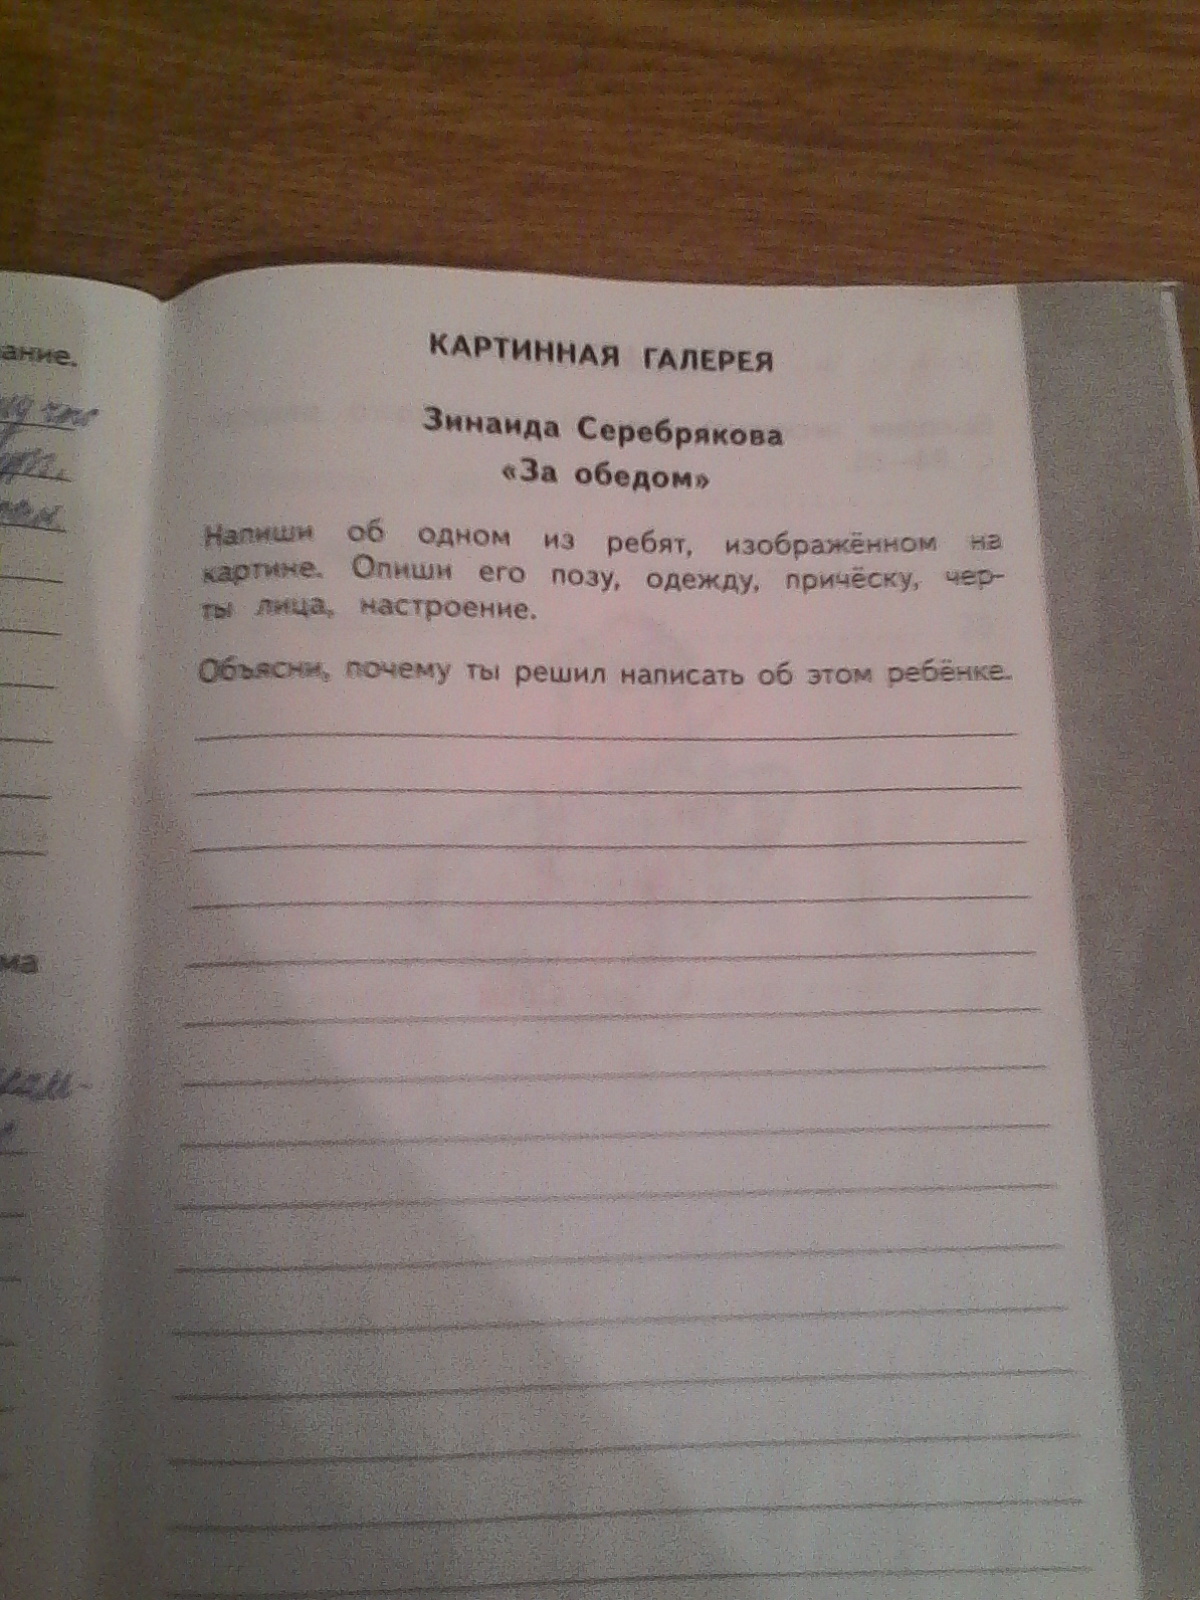 ание.
КАРТИННАЯ ГАЛЕРЕЯ
Зинаида Серебрякова
«За обедом»
Напиши об одном из ребят, изображённом на
картине. Опиши его позу, одежду, причёску, чер-
ты лица, настроение.
Объясни, почему ты решил написать об этом ребёнке.
ма